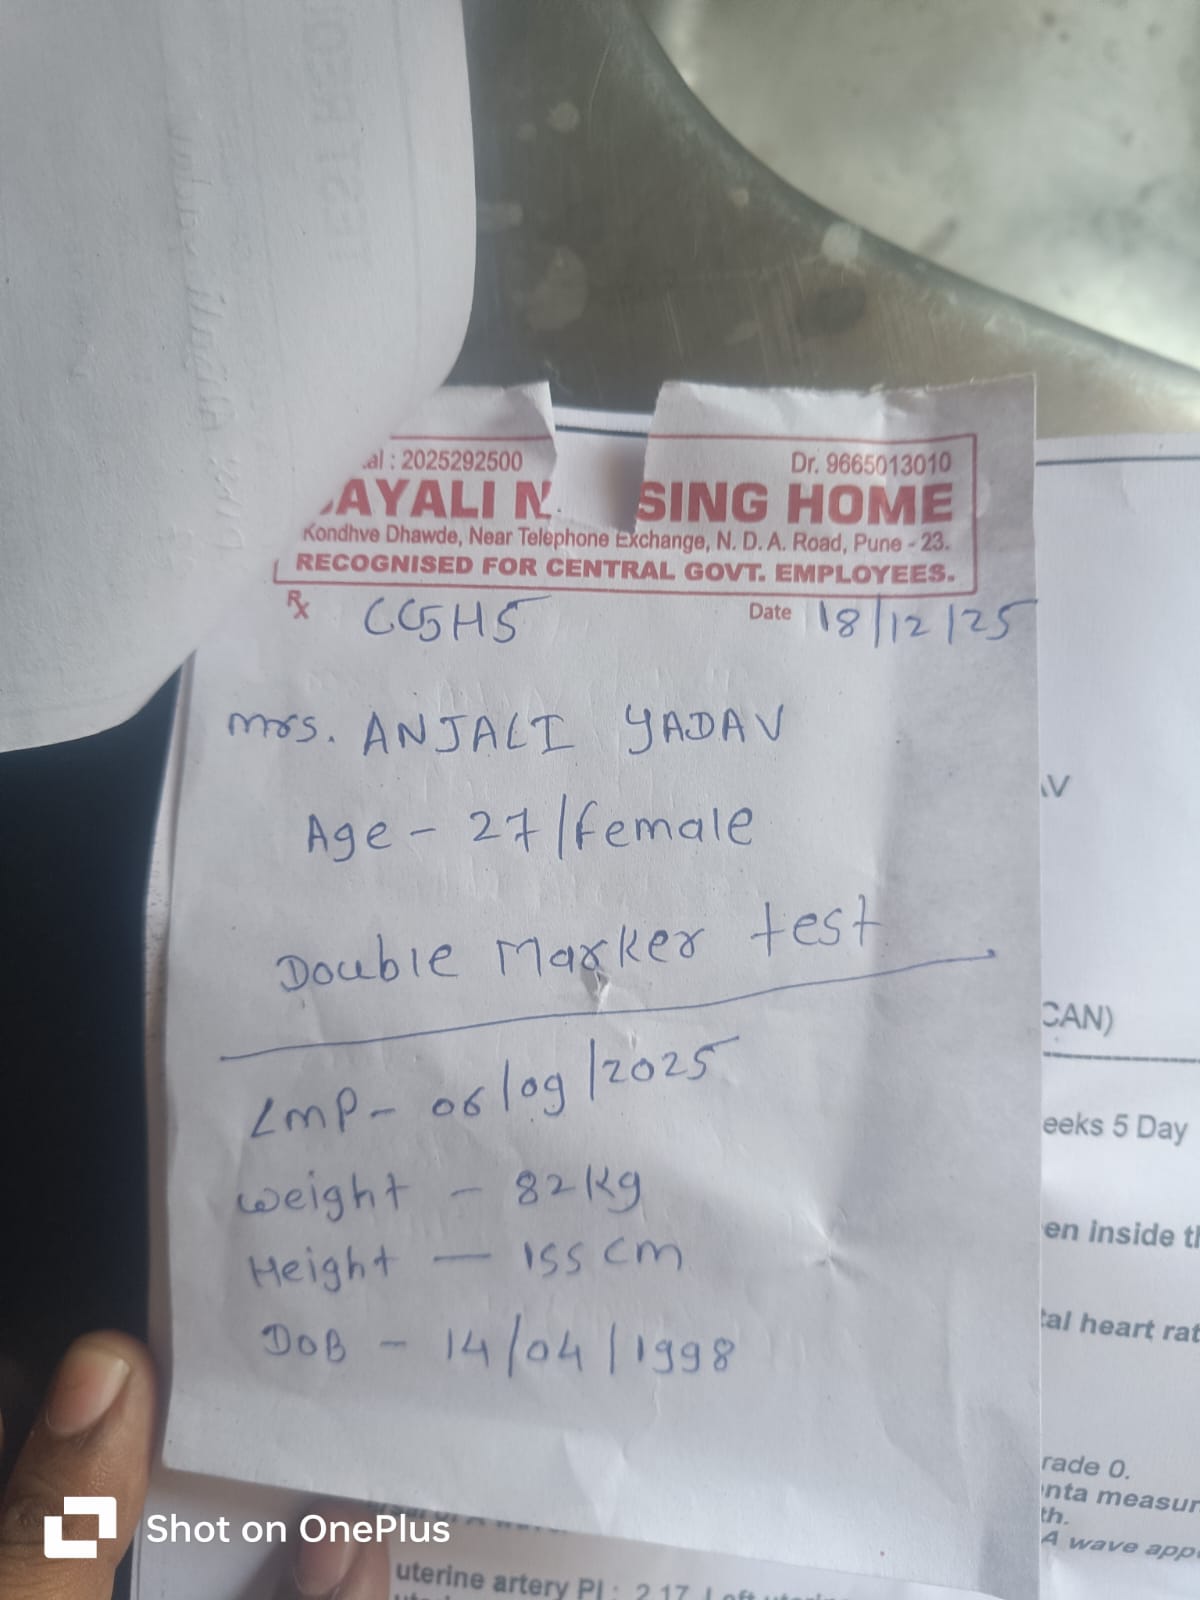 al : 2025292500
Dr. 9665013010
AYALI N SING HOME
Kondhve Dhawde, Near Telephone Exchange, N. D. A. Road, Pune - 23.
RECOGNISED FOR CENTRAL GOVT. EMPLOYEES.
Rx
Date 18/12/25
Mrs. ANJALI YADAV
Age - 27/female
Double Marker test
LMP - 06/09/2025
Weight - 82kg
Height - 155 cm
DOB - 14/04/1998
AV
CAN)
eeks 5 Day
en inside th
tal heart rat
rade 0.
nta measur
th.
A wave app
uterine artery PI : 2.17
Shot on OnePlus